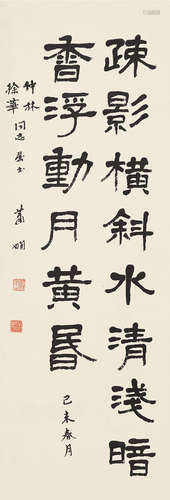 疎影橫斜水清淺暗
香浮動月黃昏
己未春月
竹林
徐華同志屬書
蕭嫻